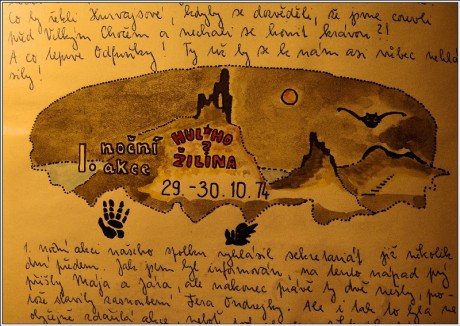 co ty řekli Hurvajsové, kdyby se dověděli, že jsme couvli
před Velkým Chočem a nechali se honit krávou?!
A co teprve Odfuňky! Ty už by se k nám asi vůbec nehlá
sily!
1. noční
akce
HULIHO
?
ŽILINA
29.-30.10.74
1. noční akci našeho spolku vyhlásil sekretariát již několik
dní předem. Jak jsem byl informován, na tento nápad prý
přišly Maja a Jára, ale nakonec právě ty dvě nešly, pro-
tože slavily narození Ondrejky. Ale i tak to byla ne
zdařilá akce, neboť